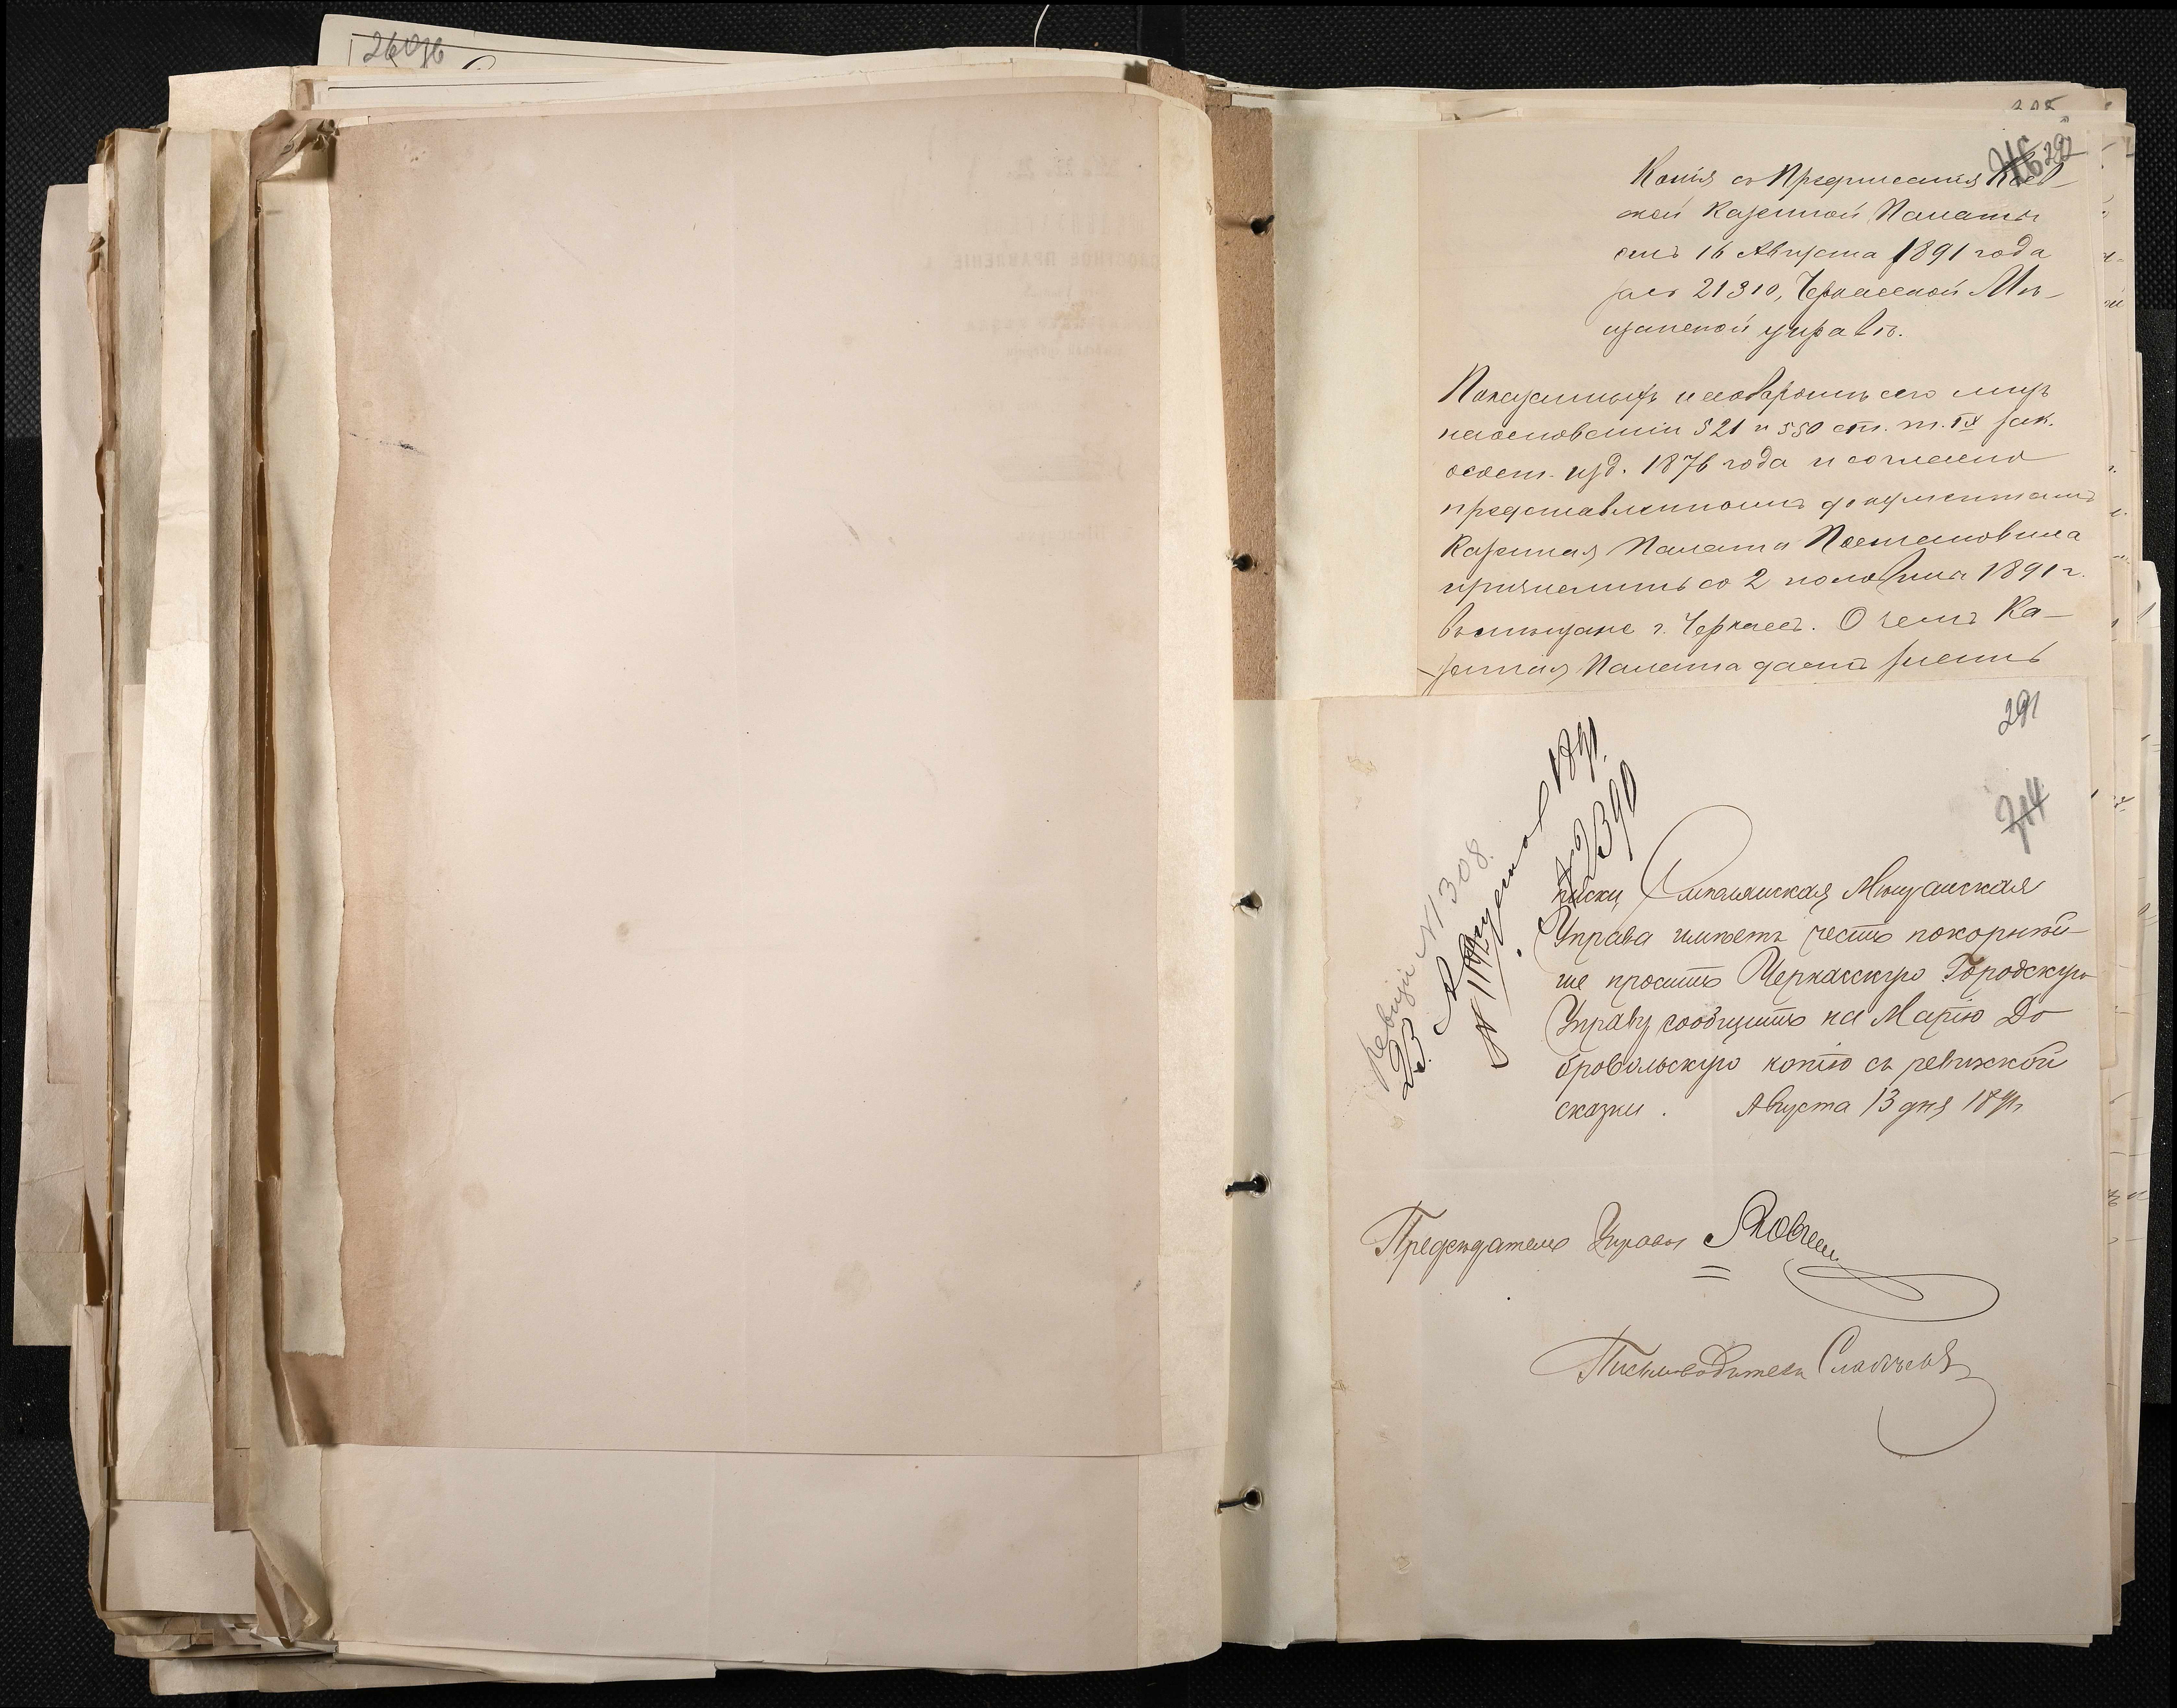 292
Копія съ Предписанія Кіев-
ской Казенной Палаты
отъ 16 Августа 1891 года
за № 21310, Черкасской Мѣ-
щанской управѣ.
Показанныхъ на оборотѣ сего лицъ
на основаніи 521 и 550 ст. т. IX зак.
о сост. изд. 1876 года и согласно
представленнымъ документамъ
Казенная Палата Постановила
причислить со 2 половины 1891 г.
въ мѣщане г. Черкассъ. О чемъ Ка-
зенная Палата даетъ знать
291
314
ревизіи № 308.
23 Августа 1891.
№ 2390
№ 1192
писки Смѣлянская Мѣщанская
Управа имѣетъ честь покорнѣй-
ше просить Черкасскую Городскую
Управу сообщить на Марію До
бровольскую копію съ ревизской
сказки. Августа 13 дня 1891 г.
Предсѣдатель Управы
Письмоводитель